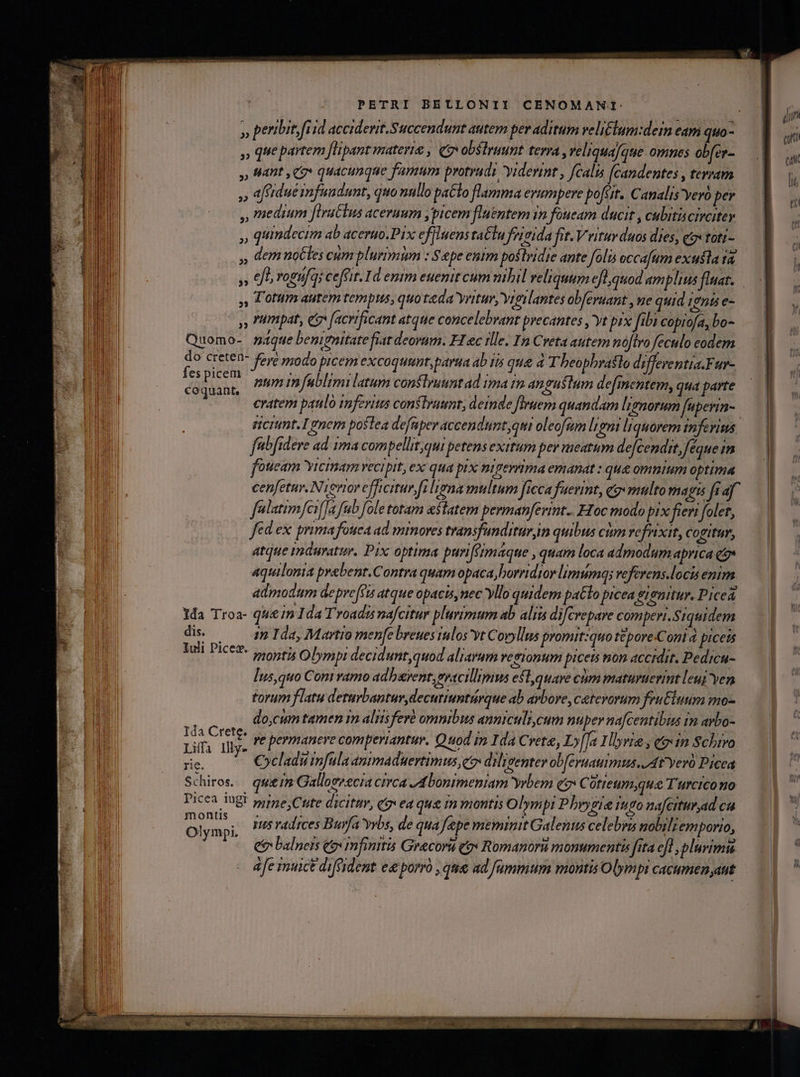 PETRI BELLONII CENOMANI
„ peribit, si id acciderit. Succendunt autem per aditum relictum: dein eam quo-
„ que partem stipant materia, & obstruunt terra, reliquasque omnes obser-
„ uant, & quacunque fumum protrudi viderint, scalis scandentes, terram
„ assidue infundunt, quo nullo pacto flamma erumpere possit. Canalis verò per
„ medium structus aceruum, picem fluentem in foueam ducit, cubitis circiter
„ quindecim ab aceruo. Pix effluens tactu frigida fit. Vritur duos dies, & toti-
„ dem noctes cum plurimum: Sæpe enim postridie ante solis occasum exusta iã
„ est, rogusq; cessit. Id enim euenit cum nihil reliquum est, quod amplius fluat.
„ Totum autem tempus, quo tæda vritur, vigilantes obseruant, ne quid ignis e-
„ rumpat, & sacrificant atque concelebrant precantes, vt pix sibi copiosa, bo-
Quomo- náque benignitate fiat deorum. Hæc ille. In Creta autem nostro seculo eodem
do creten- ferè modo picem excoquunt, parua ab iis quæ à Theophrasto differentia. Fur-
ses picem num in sublimi latum construunt ad ima in angustum desinentem, qua parte
coquant, cratem paulò inferius construunt, deinde struem quandam lignorum superin-
iiciunt. Ignem postea desuper accendunt, qui oleosum ligni liquorem inferius
subsidere ad ima compellit, qui petens exitum per meatum descendit, séque in
foueam vicinam recipit, ex qua pix nigerrima emanat: quæ omnium optima
censetur. Nigrior efficitur, si ligna multum sicca fuerint, & multo magis si as-
sulatim scissa sub sole totam æstatem permanserint. Hoc modo pix fieri solet,
sed ex prima fouea ad minores transfunditur, in quibus cùm refrixit, cogitur,
atque induratur. Pix optima purissimáque, quam loca admodum aprica &
aquilonia præbent. Contra quam opaca, horridior limúmq; referens. locis enim
admodum depressis atque opacis, nec vllo quidem pacto picea gignitur. Piceã
Ida Troa- quæ in Ida Troadis nascitur plurimum ab aliis discrepare comperi. Siquidem
dis. in Ida, Martio mense breues iulos vt Coryllus promit: quo tẽpore Coni à piceis
Iuli Piceæ. montis Olympi decidunt, quod aliarum regionum piceis non accidit. Pedicu-
lus, quo Coni ramo adhærent, gracillimus est, quare cùm maturuerint leui ven
torum flatu deturbantur, decutiuntúrque ab arbore, cæterorum fructuum mo-
do, cùm tamen in aliis ferè omnibus anniculi, cum nuper nascentibus in arbo-
Ida Cretę. re permanere comperiantur. Quod in Ida Cretæ, Lyssa Illyriæ, & in Schiro
Lissa Illy- Cycladũ insula animaduertimus, & diligenter obseruauimus. At verò Picea
rie.
Schiros. quæ in Gallogræcia circa Abonimeniam vrbem & Cotieum, quæ Turcico no
Picea iugi mine, Cute dicitur, & ea quæ in montis Olympi Phrygiæ iugo nascitur, ad cu
montis ius radices Bursa vrbs, de qua sæpe meminit Galenus celebris nobili emporio,
Olympi. & balneis & infinitis Græcorũ & Romanorũ monumentis sita est, plurimũ
à se inuicẽ dissident eæ porrò, quæ ad summum montis Olympi cacumen, aut